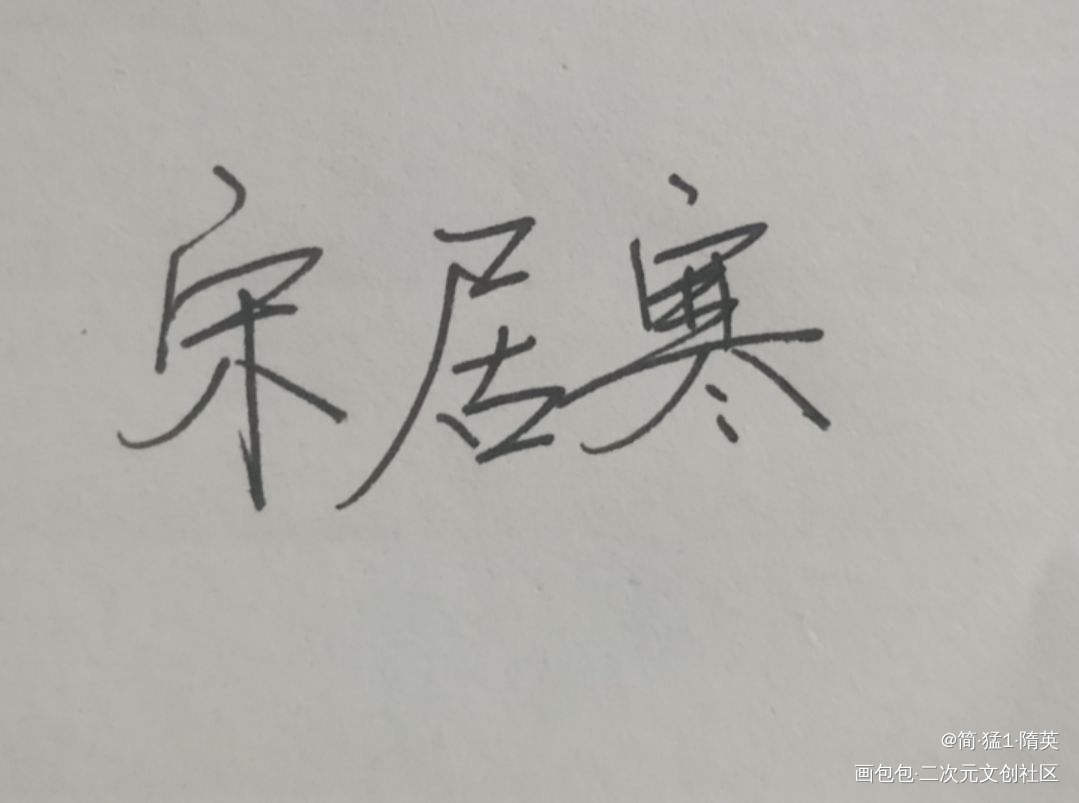 宋居寒
@简·猛1·隋英
画包包·二次元文创社区